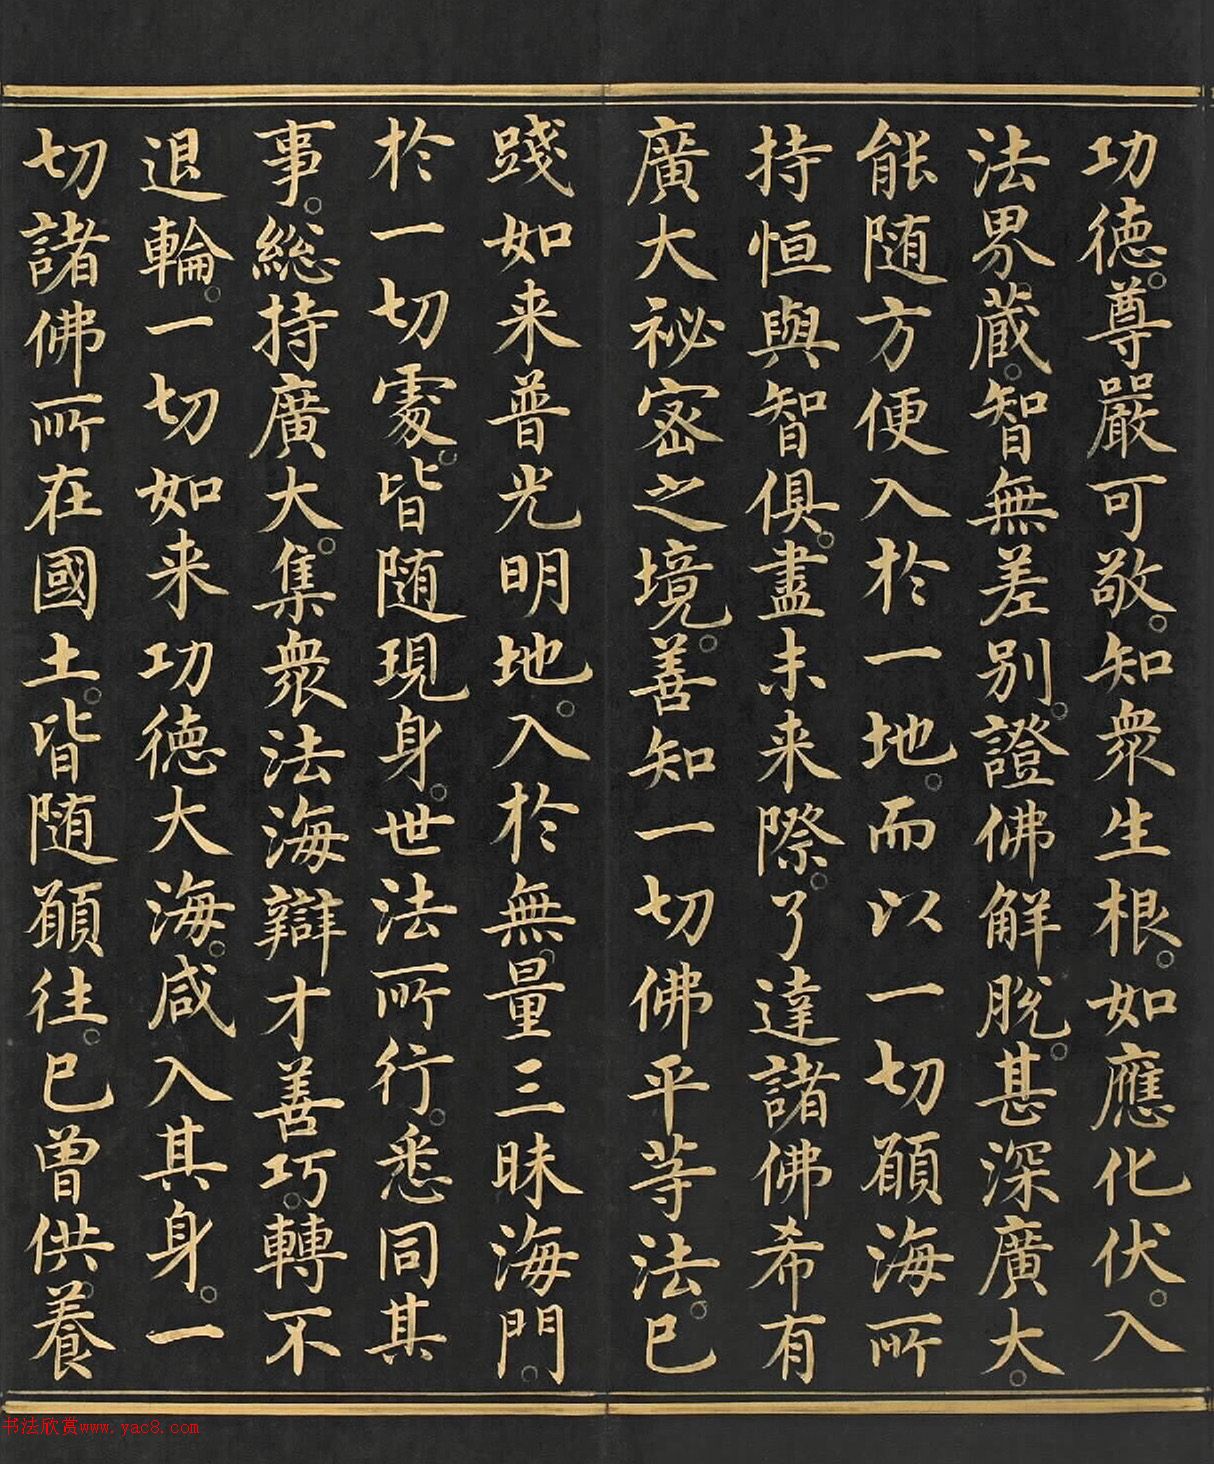 功德。尊嚴可敬。知衆生根。如應化伏。入
法界藏。智無差別。證佛解脫。甚深廣大。
能随方便入於一地。而以一切願海所
持恒與智俱。盡未来際。了達諸佛希有
廣大祕密之境。善知一切佛平等法。已
踐如来普光明地。入於無量三昧海門。
於一切處。皆随現身。世法所行。悉同其
事。総持廣大。集衆法海辯才善巧。轉不
退輪。一切如来功德大海。咸入其身。一
切諸佛所在國土。皆随願往。已曾供養
书法欣赏www.yac8.com